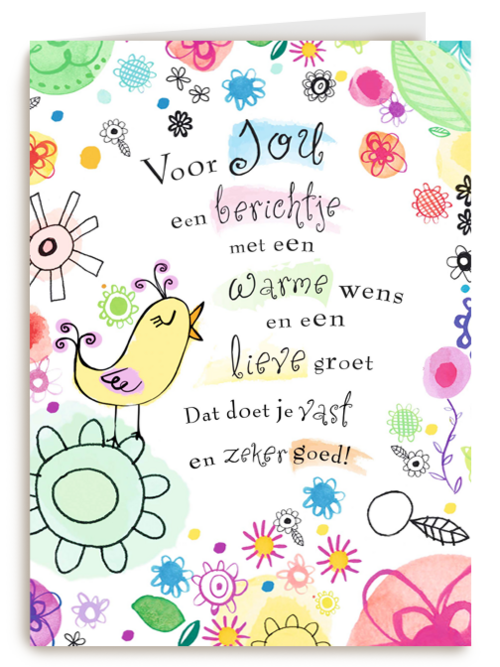 Voor Jou
een berichtje
met een
warme wens
en een
lieve groet
Dat doet je vast
en zeker goed!